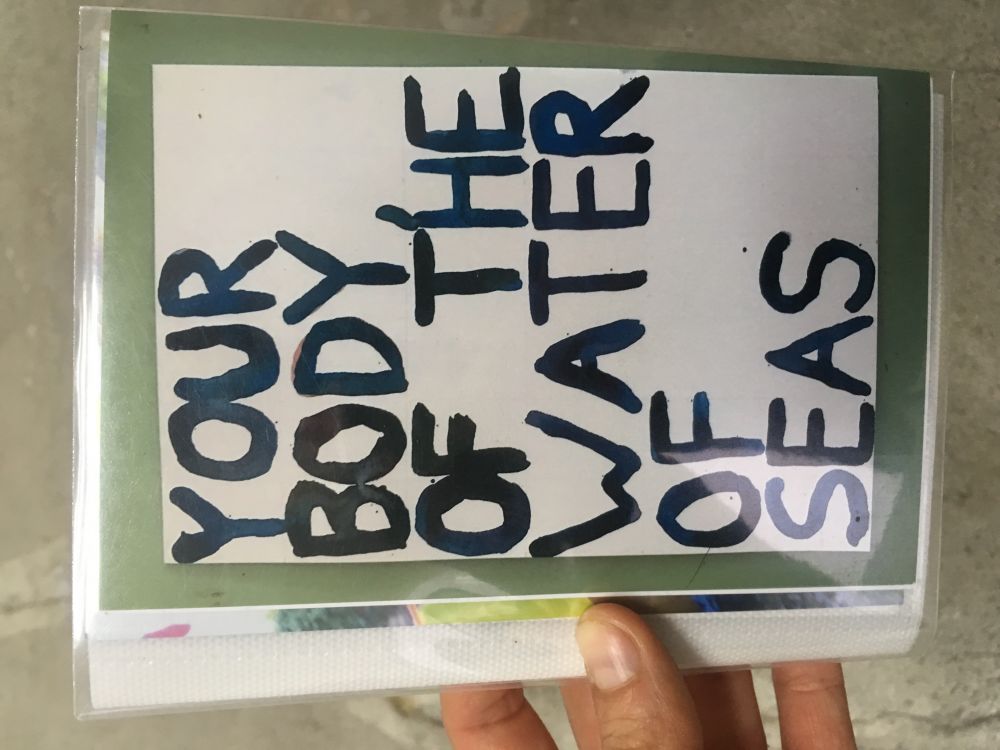 YOUR
BODY,
OF THE
WATER
OF
SEAS